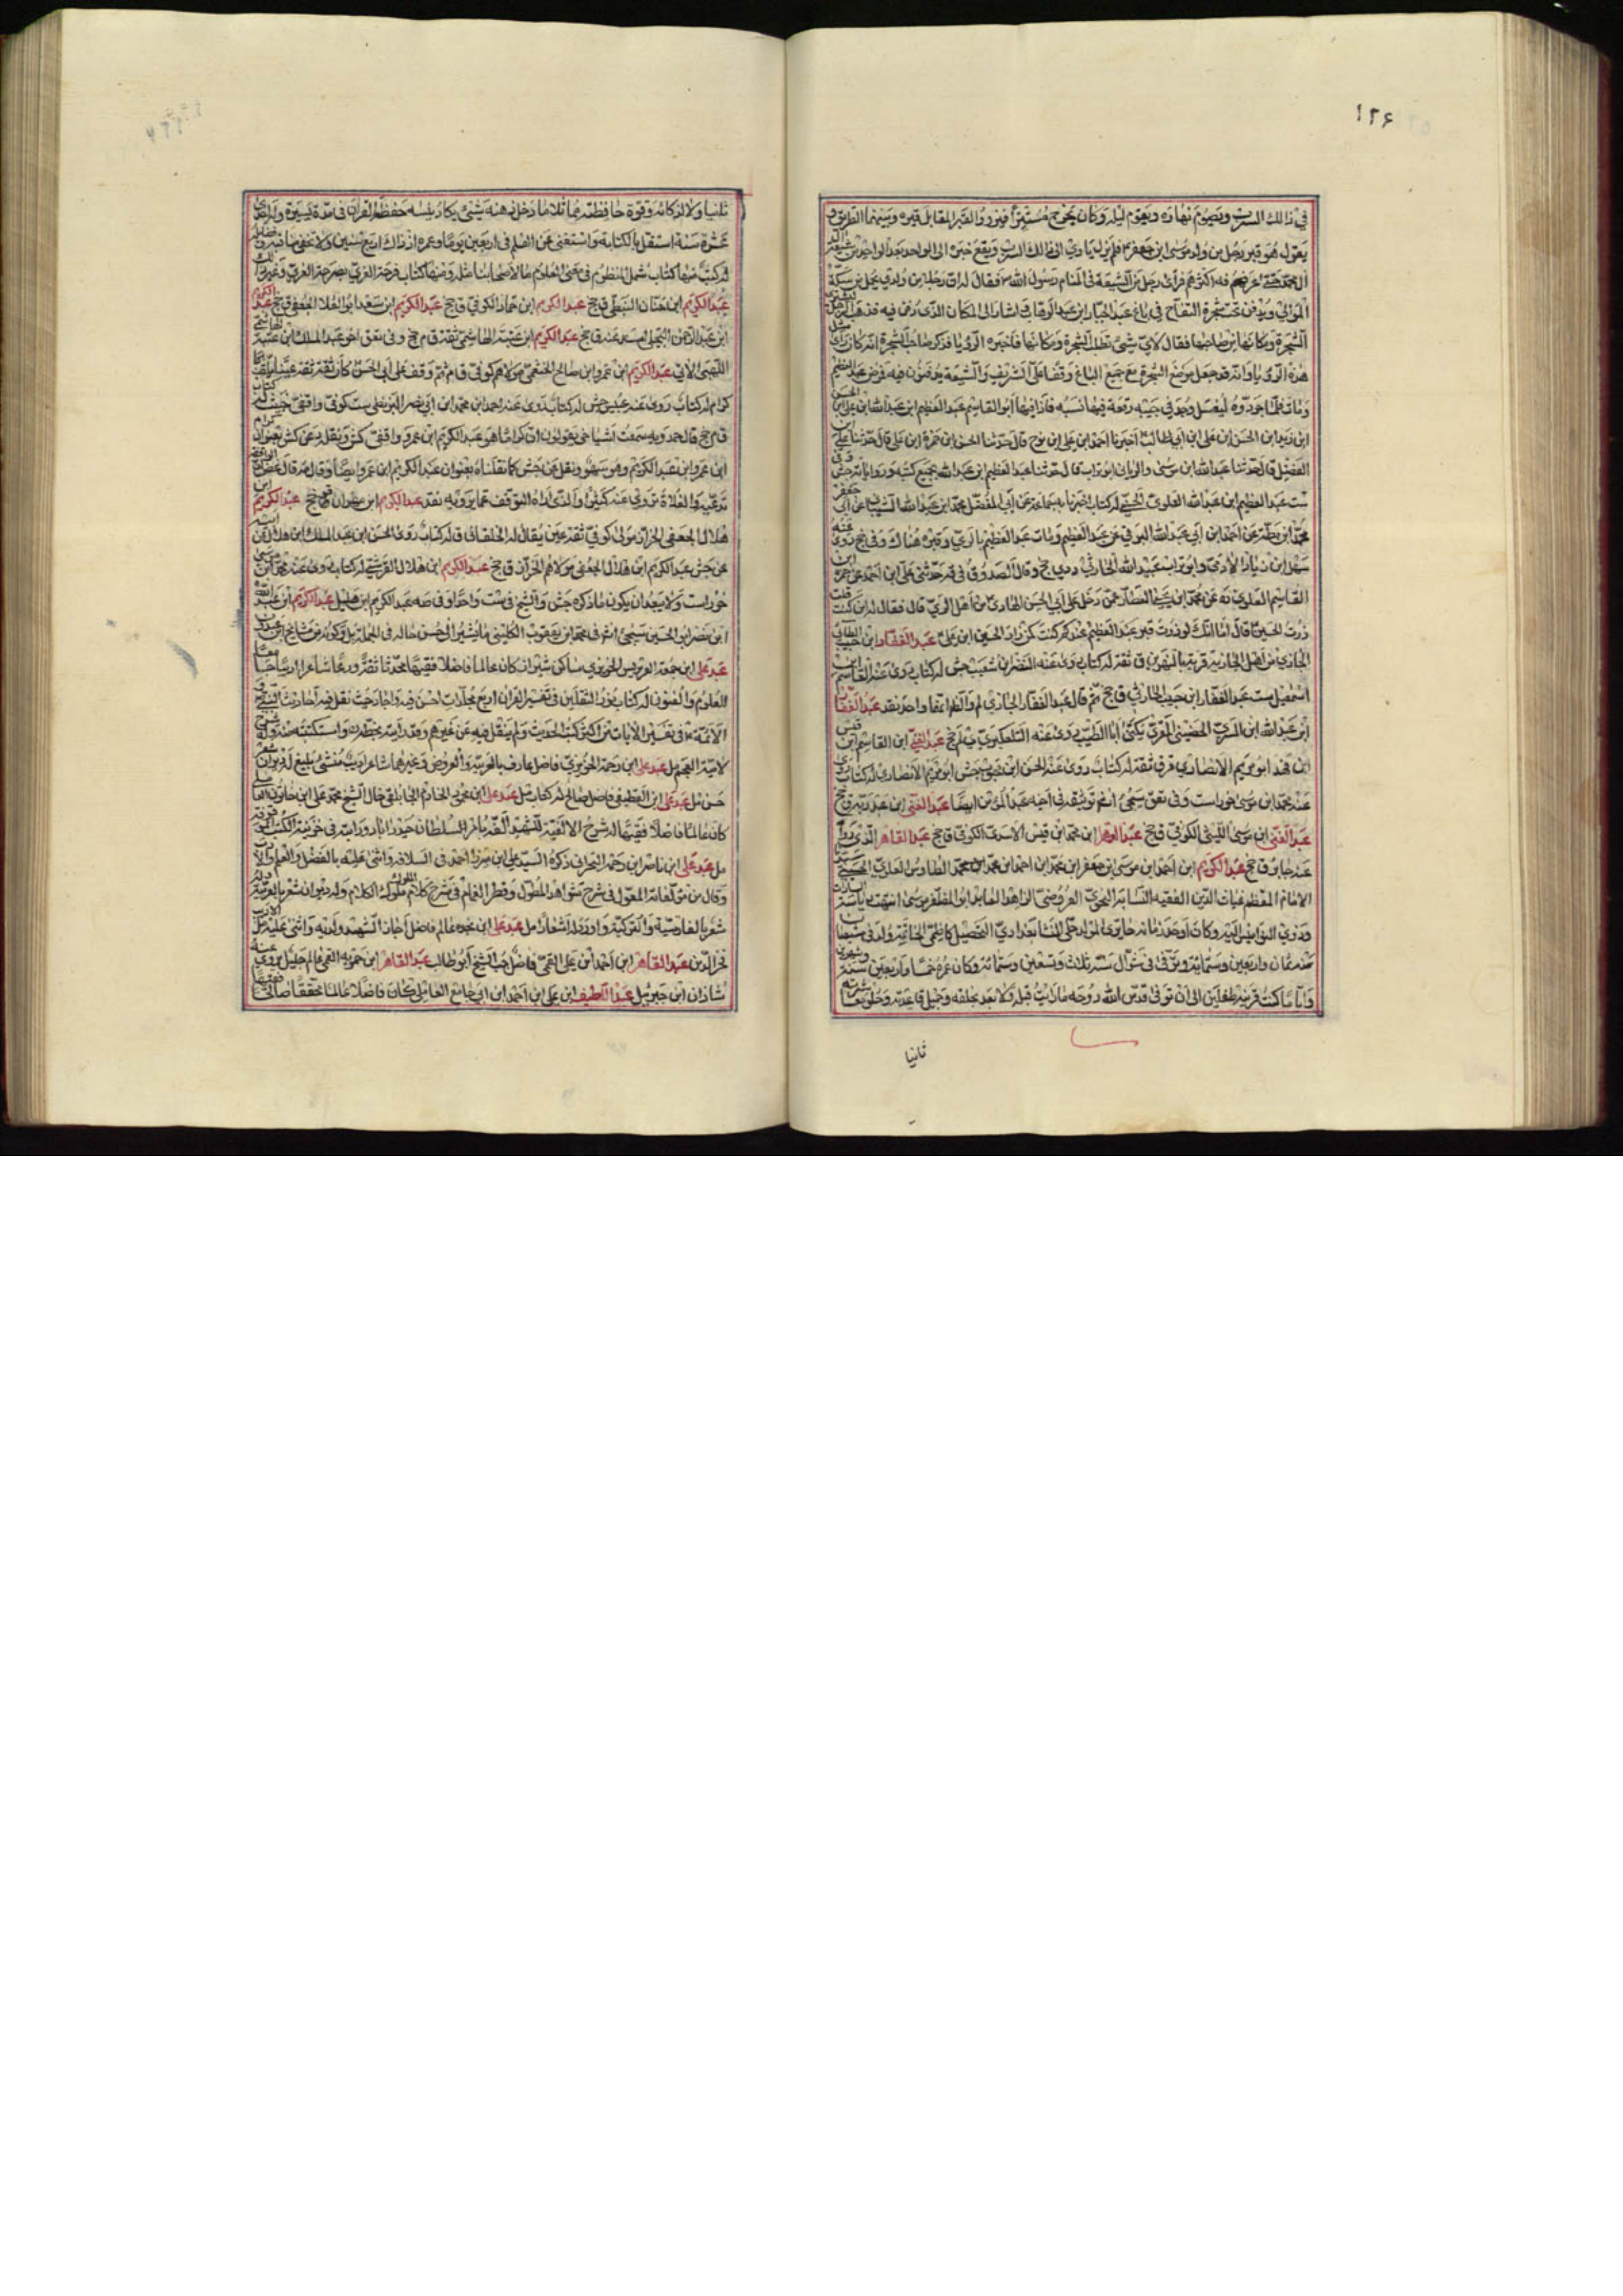 ١٢٤
في ذلك السرب ويصوم نهاره ويقوم ليله وكان يخرج مستترا فيزور القبر المقابل قبره وبينهما الطريق و
يقول هو قبر رجل من ولد موسى ابن جعفر فلم يزل يأوي الى ذلك السرب ويقع خبره الى الواحد بعد الواحد من شيعة
آل محمد حتى عرفه أكثرهم فرأى رجل من الشيعة في المنام رسول الله فقال له ان رجلا من ولدي يحمل من سكة
الموالي ويدفن تحت شجرة التفاح في باغ عبد الجبار ابن عبد الوهاب واشار الى المكان الذي دفن فيه فذهب الرجل ليشتري
الشجرة ومكانها من صاحبها فقال لأي شيء تطلب الشجرة ومكانها فاخبره الرؤيا فذكر صاحب الشجرة انه كان رأى مثل
هذه الرؤيا وانه قد جعل موضع الشجرة مع جميع الباغ وقفا على الشريف والشيعة يدفنون فيه فمرض عبد العظيم
ومات فلما جردوه ليغسل وجد في جيبه رقعة فيها نسبه فاذا فيها أبو القاسم عبد العظيم ابن عبد الله ابن علي ابن الحسن
ابن زيد ابن الحسن ابن علي ابن أبي طالب اخبرنا احمد ابن علي ابن نوح قال حدثنا الحسن ابن حمزة ابن علي قال حدثنا علي ابن
الفضيل قال حدثنا عبد الله ابن موسى والروياني ابو تراب قال حدثنا عبد العظيم ابن عبد الله بجميع كتبه ورواياته جش وفي
ست عبد العظيم ابن عبد الله العلوي الحسني له كتاب اخبرنا به جماعة عن أبي المفضل محمد ابن عبد الله الشيباني عن أبي جعفر
محمد ابن بطة عن احمد ابن أبي عبد الله البرقي عن عبد العظيم ومات عبد العظيم بالري وقبره هناك وفي جخ روى عنه
سهل ابن زياد الآدمي وابو تراب عبيد الله الحارثي دي جخ وقال الصدوق في يه حدثني علي ابن احمد عن حمزة ابن
القاسم العلوي ره عن محمد ابن يحيى العطار عمن دخل على أبي الحسن الهادي من أهل الري قال فقال له اين كنت قلت
زرت الحسين قال اما انك لو زرت قبر عبد العظيم عندكم كنت كمن زار الحسين ابن علي عبد الغفار ابن حبيب الطائي
الجازي من اهل الجازية قرية بالنهرين ق ثقة له كتاب روى عنه النضر ابن شعيب جش له كتاب روى عنه القاسم ابن
اسمعيل ست عبد الغفار ابن حبيب الحارثي ق جخ ثم قال عبد الغفار الجازي لم والظاهر اتحادهما واحد نقد عبد الغفار
ابن عبد الله ابن السري الحضيني المقري يكنى أبا الطيب روى عنه التلعكبري لم جخ عبد الغفار ابن القاسم ابن قيس
ابن فهد ابو مريم الانصاري قر ق ثقة له كتاب روى عنه الحسن ابن محبوب جش ابو مريم الانصاري له كتاب روى
عنه محمد ابن موسى خوراء ست وفي تعق سيجيء انتم توثيقه في اخيه عبد المؤمن ايضا عبد الغني ابن عبد ربه ق جخ
عبد الغني ابن موسى الليثي الكوفي ق جخ عبد القاهر ابن محمد ابن قيس الأسدي الكوفي ق جخ عبد القاهر الذي روى
عنه جابر ق جخ عبد الكريم ابن احمد ابن موسى ابن جعفر ابن محمد ابن احمد ابن محمد ابن محمد الطاوس العلوي الحسني سيدنا
الامام المعظم غياث الدين الفقيه النسابة النحوي العروضي الزاهد العابد ابو المظفر انتهت رياسة السادات
وذوي النواميس اليه وكان أوحد زمانه حايري المولد حلي المنشأ بغدادي التحصيل كاظمي الخاتمة ولد في شعبان
سنة ثمان واربعين وستمائة وتوفي في شوال سنة ثلاث وتسعين وستمائة وكان عمره خمسا واربعين سنة وشهرين
وأياما كنت قرينه طفلين الى ان توفى قدس الله روحه ما رأيت قبله ولا بعده بخلقه وجميل قاعدته وحلو معاشرته
ثانيا
ثانيا ولا لذكائه وقوة حافظته مماثلا ما دخل ذهنه شيء يكاد ينساه حفظ القرآن في مدة يسيرة وله احدى
عشرة سنة استقل بالكتابة واستغنى عن المعلم في اربعين يوما وعمره اذ ذاك اربع سنين ولا تحصى مناقبه وفضائله
له كتب منها كتاب شمل المنظوم في مصنفي العلوم ما لاصحابنا مثله ومنها كتاب فرحة الغري بصرحة الغري وغير ذلك
عبد الكريم ابن حسان النبطي ق جخ عبد الكريم ابن حماد الكوفي ق جخ عبد الكريم ابن سعد ابو العلا الجعفي ق جخ عبد الكريم
ابن عبد الرحمن البجلي اسند عنه ق جخ عبد الكريم ابن عتبة الهاشمي ثقة ق م جخ وفي تعق اخو عبد الملك ابن عتبة
اللهبي الآتي عبد الكريم ابن عمرو ابن صالح الخثعمي مولاهم كوفي ق م ثم وقف على أبي الحسن كان ثقة ثقة عينا يلقب
كرام له كتاب روى عنه عبيس جش له كتاب روى عنه احمد ابن محمد ابن أبي نصر البزنطي ست كوفي واقفي خبيث له كتاب
ق م جخ قال حمدويه سمعت اشياخي يقولون ان كراما هو عبد الكريم ابن عمرو واقفي كش
ابن عمرو ابن عبد الكريم وهو سهو ونقل عن جش كما نقلناه بعنوان عبد الكريم ابن عمرو
عبد الكريم ابن مهران ق جخ عبد الكريم ابن
هلال الجعفي الخزاز مولى كوفي ثقة عين يقال له الخلقاني ق له كتاب روى الحسن ابن عبد الملك ابن هلال
عن جش عبد الكريم ابن هلال الجعفي مولاهم الخزاز ق جخ عبد الكريم ابن هلال القرشي له كتاب روى عنه محمد ابن موسى
خوراء ست ولا يبعد ان يكون ما ذكره جش والشيخ في ست واحدا وفي صه عبد الكريم ابن هليل عبد الكريم ابن عبد الله
ابن نصر ابن الحسين سيجيء انتم في محمد ابن يعقوب الكليني ما يشير الى حسن حاله في الجملة بل وكونه من مشايخ
عبد علي ابن جمعة العروسي الحويزي ساكن شيراز كان عالما فاضلا فقيها محدثا ثقة ورعا شاعرا اديبا جامعا
للعلوم والفنون له كتاب نور الثقلين في تفسير القرآن اربع مجلدات احسن فيه واجاد حيث نقل فيه احاديث النبي و
الأئمة في تفسير الآيات من أكثر كتب الحديث ولم ينقل فيه عن غيرهم وقد رأيته بخطه واستكتبته منه وله شرح
لامية العجم مل عبد علي ابن رحمة الحويزي فاضل عارف بالعربية والعروض وغيرهما شاعر اديب منشئ بليغ له ديوان شعر
حسن مل عبد علي ابن القطيفي فاضل صالح له كتاب مل عبد علي ابن محمود الخادم الجابلقي خال الشيخ محمد علي ابن خاتون العاملي
كان عالما فاضلا فقيها له شرح الالفية للشهيد ألفه بامر السلطان حيدراباد ورأيته في خزينة الكتب الموقوفة
مل عبد علي ابن ناصر ابن رحمة البحراني ذكره السيد علي ابن ميرزا احمد في السلافة واثنى عليه بالفضل والعلم والأدب
وقال من مؤلفاته المعول في شرح شواهد المطول وقطر الغمام في شرح كلام الملوك ملوك الكلام وله ديوان شعر بالعربية وله
شعر بالفارسية والتركية واورد له اشعارا مل عبد علي ابن نجده عالم فاضل اجازه الشهيد ولديه واثنى عليه مل
فخر الدين عبد القاهر ابن احمد ابن علي القمي فاضل الشيخ أبو طالب عبد القاهر ابن حمويه القمي عالم جليل يروي عنه
شاذان ابن جبرئيل عبد اللطيف ابن علي ابن احمد ابن ابي جامع العاملي كان فاضلا عالما محققا صالحا فقيها